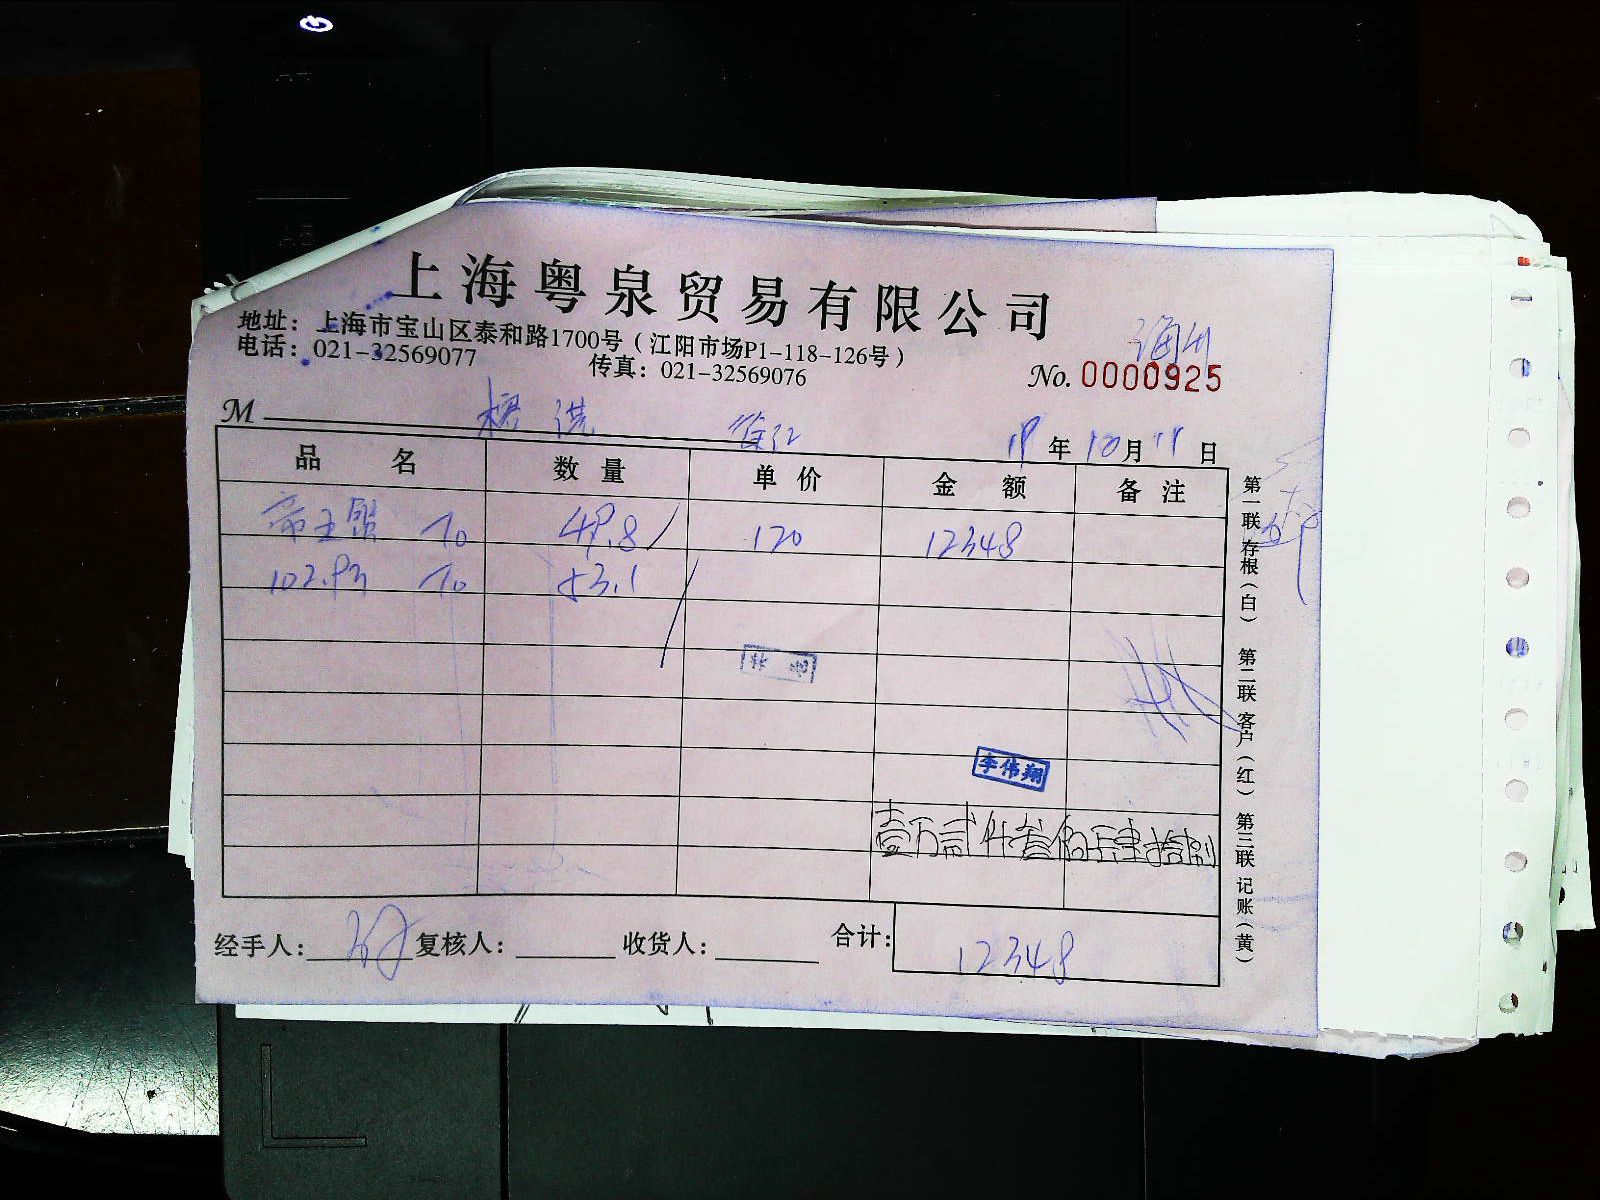 上海粤泉贸易有限公司
地址：上海市宝山区泰和路1700号（江阳市场P1-118-126号）
电话：021-32569077 传真：021-32569076
No. 0000925
M 徐汇 年 10月 日
品名 数量 单价 金额 备注
帝王蟹 49.8 120 12348
102.9 53.1
李伟翔
壹万贰仟叁佰肆拾捌
经手人： 复核人： 收货人： 合计： 12348
第一联 存根（白） 第二联 客户（红） 第三联 记账（黄）